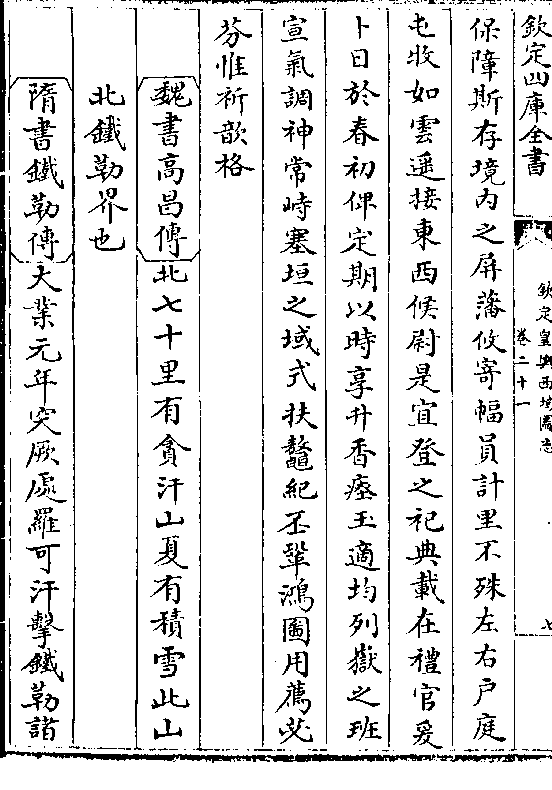 欽定四庫全書
欽定皇輿西域圖志
卷二十一
七
保障斯存境内之屏藩攸寄幅員計里不殊左右戶庭
屯收如雲遥接東西候尉是宜登之祀典載在禮官爰
卜日於春初俾定期以時享升香瘞玉適均列嶽之班
宣氣調神常峙塞垣之域式扶鼇紀丕鞏鴻圖用薦苾
芬惟祈歆格
魏書高昌傳北七十里有貪汗山夏有積雪此山
北鐵勒界也
隋書鐵勒傳大業元年突厥處羅可汗擊鐵勒諸